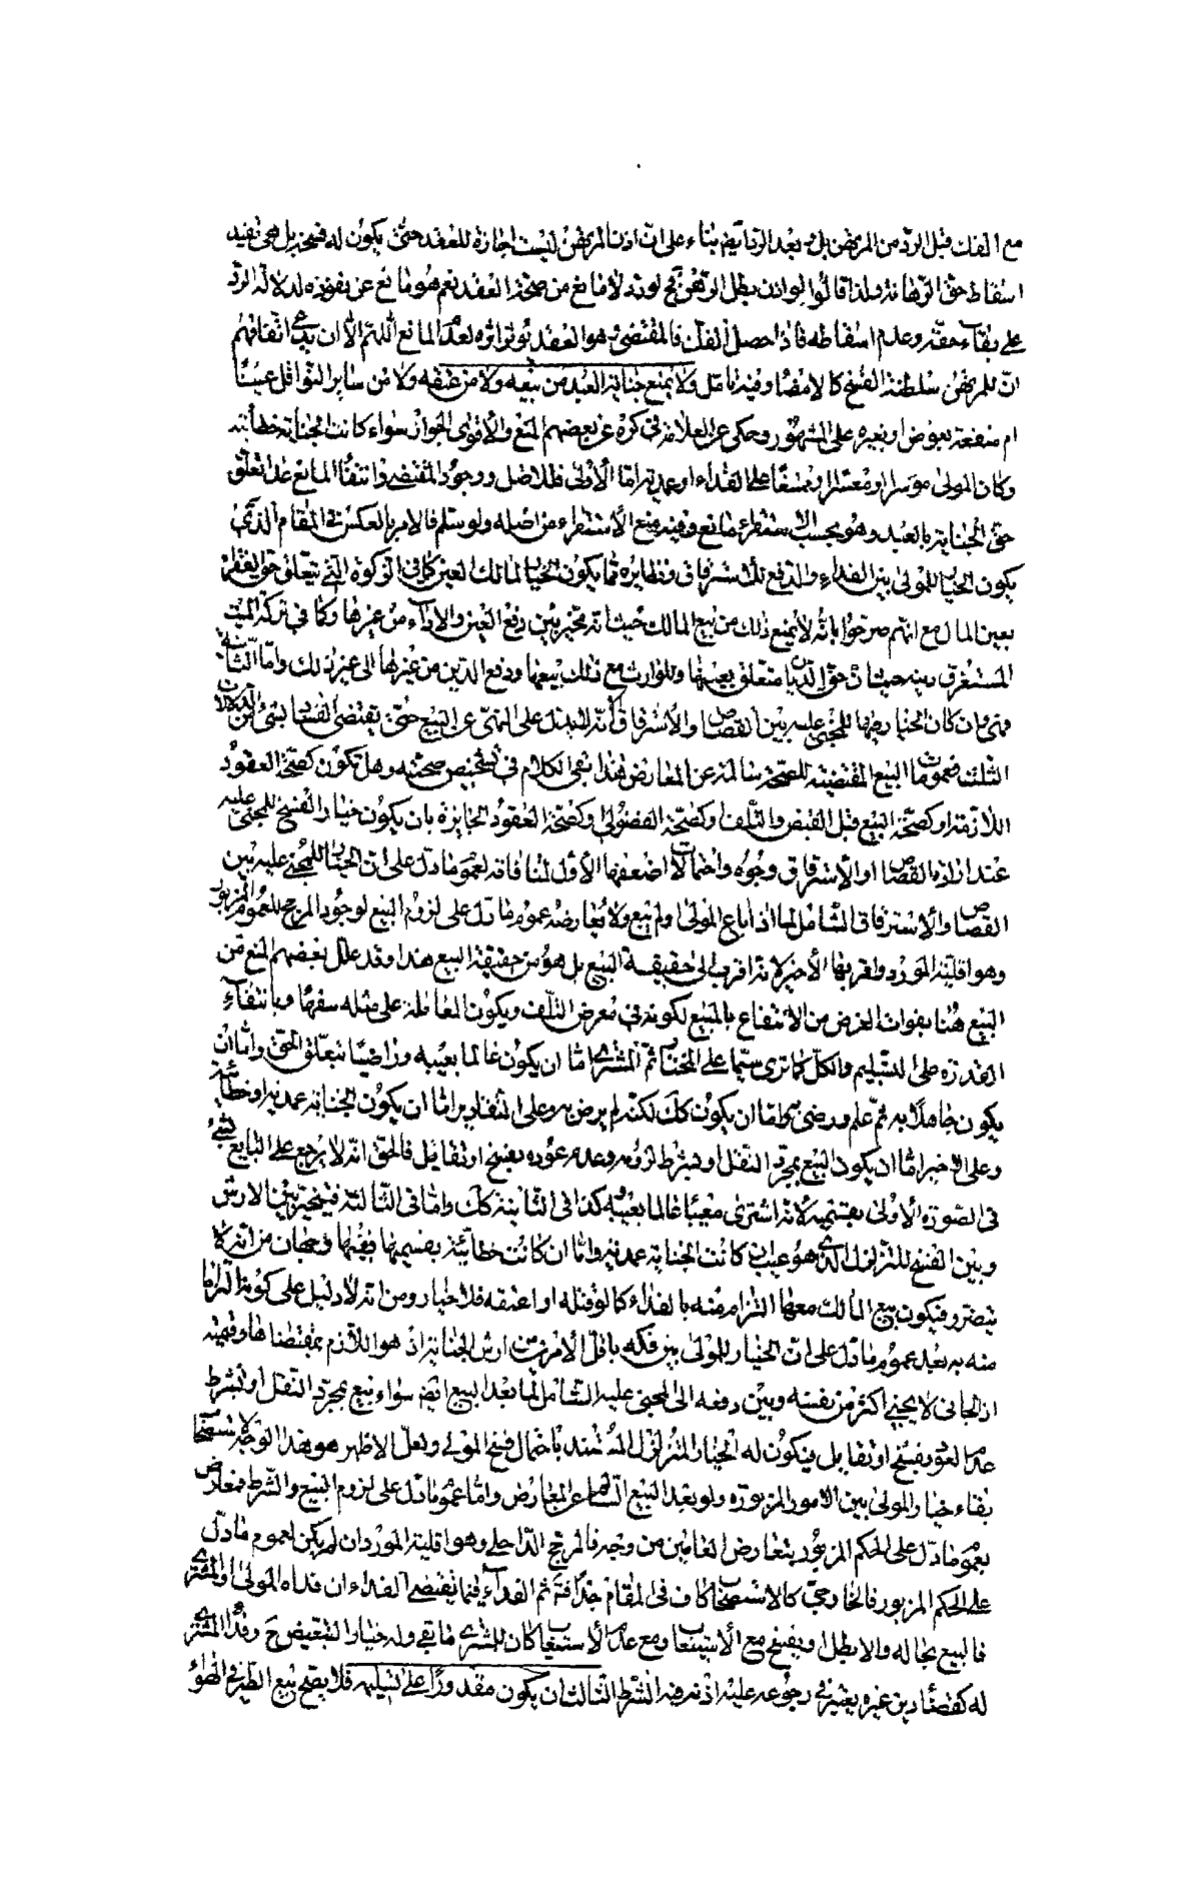 مع الفك قبل الرد من المرتهن بل وبعد الرد ايضم بناء على ان اذن المرتهن ليست اجازة للعقد حتى يكون له فسخه بل هي تفيد
اسقاط حق الرهانة ولذا قالوا لو اذن بطل الرهن فح لو رد لا مانع من صحة العقد نعم هو مانع عن نفوذه لدلالة الرد
على بقاء حقه وعدم اسقاطه فاذا حصل الفك فالمقتضى هو العقد يؤثر اثره لعدم المانع اللهم الا ان يدعى اتفاقهم
ان للمرتهن سلطنة الفسخ كالامضاء وفيه تامل ولا يمنع جناية العبد من بيعه ولا من عتقه ولا من ساير النواقل عينا
ام منفعة بعوض او بغيره على المشهور وحكى عن العلامة في كره عن بعضهم المنع والاقوى الجواز سواء كانت الجناية خطائية
وكان المولى موسرا او معسرا على الفداء او عمدية اما الاولى فللاصل ووجود المقتضى وانتفاء المانع عدا تعلق
حق الجناية بالعبد وهو بحسب الاستقراء مانع وفيه منع الاستقراء من اصله ولو سلم فالامر بالعكس في المقام الذي
يكون الخيار للمولى بين الفداء والدفع للاسترقاق ونظايره مما يكون الخيار لمالك العين كما في الزكوة التي تتعلق حق الفقراء
بعين المال مع انهم صرحوا بانه لا يمنع ذلك من بيع المالك حيث انه مخير بين دفع العين والاداء من غيرها وكما في تركة الميت
المستغرق دينه حيث ان حق الديان متعلق بعينها وللوارث مع ذلك بيعها ودفع الدين من غيرها الى غير ذلك واما الثانية
فهى وان كان الخيار فيها للمجنى عليه بين القصاص والاسترقاق الا انه لم يدل على المنهى عن البيع حتى يقتضى الفساد بشئ من الدلالات
الثلث فعمومات البيع المقتضية للصحة سالمة عن المعارض هذا بقى الكلام في تشخيص صحته وهل تكون كصحة العقود
اللازمة او كصحة البيع قبل القبض والتلف او كصحة الفضولى او كصحة العقود الجايزة بان يكون خيار الفسخ للمجنى عليه
عند ارادة القصاص او الاسترقاق وجوه واحتمالات اضعفها الاول لمنافاته لعموم ما دل على ان الخيار للمجنى عليه بين
القصاص والاسترقاق الشامل لما اذا باع المولى او لم يبع ولا يعارضه عموم ما دل على لزوم البيع لوجود المرجح للعموم المزبور
وهو اقلية المورد واقربها الاخير لانه اقرب الى حقيقة البيع بل هو من حقيقة البيع هذا وقد علل بعضهم المنع من
البيع هنا بفوات الغرض من الانتفاع بالمبيع لكونه في معرض التلف ويكون المعاملة على مثله سفها وبانتفاء
القدرة على التسليم والكل كما ترى سيما على المختار ثم المشترى اما ان يكون عالما بعيبه وراضيا بتعلق الحق واما ان
يكون جاهلا به ثم علم ورضى به واما ان يكون كك لكنه لم يرض به وعلى التقادير اما ان يكون الجناية عمدية او خطائية
وعلى الاخير اما ان يكون البيع بمجرد النقل او بشرط لزومه وعدم عوده بفسخ او تقايل فالحق انه لا يرجع على البايع بشئ
في الصورة الاولى بقسميه لانه اشترى معيبا عالما بعيبه كذا في الثانية كك واما في الثالثة فيتخير بين الارش
وبين الفسخ للتزلزل الذي هو عيب ان كانت الجناية عمدية واما ان كانت خطائية بقسيمها ففيها وجهان من انه لا
يتضرر فيكون بيع المالك معها التزام منه بالفداء كما لو قتله او اعتقه فلا خيار ومن انه لا دليل على كونه التزاما
منه به بعد عموم ما دل على ان الخيار للمولى بين فكه باقل الامرين من ارش الجناية اذ هو اللازم بمقتضاها وقيمته
اذ الجانى لا يجنى اكثر من نفسه وبين دفعه الى المجنى عليه الشامل لما بعد البيع ايضم سواء بيع بمجرد النقل او بشرط
عدم العود بفسخ او تقايل فيكون له الخيار للتزلزل المستند باحتمال فسخ المولى ولعل الاظهر هو هذا الوجه لاستصحاب
بقاء خيار المولى بين الامور المزبورة ولو بعد البيع السالم عن المعارض واما عموم ما دل على لزوم البيع والشرط فمعارض
بعموم ما دل على الحكم المزبور بتعارض العامين من وجه فالمرجح الداخلى وهو اقلية المورد ان لم يكن لعموم ما دل
على الحكم المزبور فالخارجى كالاستصحاب كاف في المقام جدا فتم ثم الفداء فيما يقتضى الفداء ان فداه المولى او المشترى
فالبيع بحاله والا بطل او ينفسخ مع الاستيعاب ومع عدم الاستيعاب كان للمشترى ما بقى وله خيار التبعيض ح وفداء المشترى
له كقضاء دين غيره يعتبر في رجوعه عليه اذنه فيه الشرط الثالث ان يكون مقدورا على تسليمه فلا يصح بيع الطير في الهواء